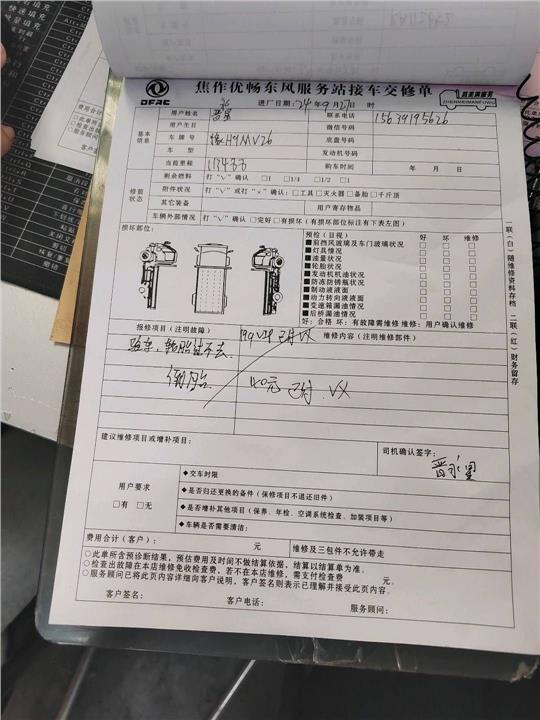 DFAC
焦作优畅东风服务站接车交修单
真美满服务
ZHENMEIMANFUWU
进厂日期：24年9月21日 时
基本信息
用户姓名
联系电话 15639195626
用户生日
微信号码
车牌号 豫H9MV26
底盘号码
车型
发动机号码
当前里程
购车时间 年 月 日
修前状态
剩余燃料 打“√”确认 □1 □1/4 □1/2 □1
附件状况 打“√”或打“×”确认：□工具□灭火器□备胎□千斤顶
其它装备
用户寄存物品
车辆外部情况 打“√”确认□完好□有损坏(有损坏部位标注有下表左图)
损坏部位：
预检(目视) 好 坏 维修
■前挡风玻璃及车门玻璃状况
■灯具情况
■油量状况
■轮胎状况
■发动机机油状况
■防冻防锈瓶状况
■制动液液面
■动力转向液液面
■变速箱漏油情况
■后桥漏油情况
好：合格 坏：有故障需维修 维修：用户确认维修
报修项目(注明故障)
维修内容(注明维修部件)
40元 已付 VX
建议维修项目或增补项目：
司机确认签字：
用户要求
□有 □无
◆交车时限
◆是否归还更换的备件(保修项目不退还旧件)
◆是否增补其他项目(保养、年检、空调系统检查、加装项目等)
◆车辆是否需要清洁：
费用合计(客户)： 元
维修及三包件不允许带走
○此单所含预诊断结果，预估费用及时间不做结算依据，结算以结算单为准。
○检查出故障在本店维修免收检查费，若不在本店维修，需支付检查费 元。
○服务顾问已将此页内容详细向客户说明，客户签名则表示已理解并接受此页内容。
客户签名： 客户电话： 服务顾问：
一联(白)随维修资料存档 二联(红)财务留存